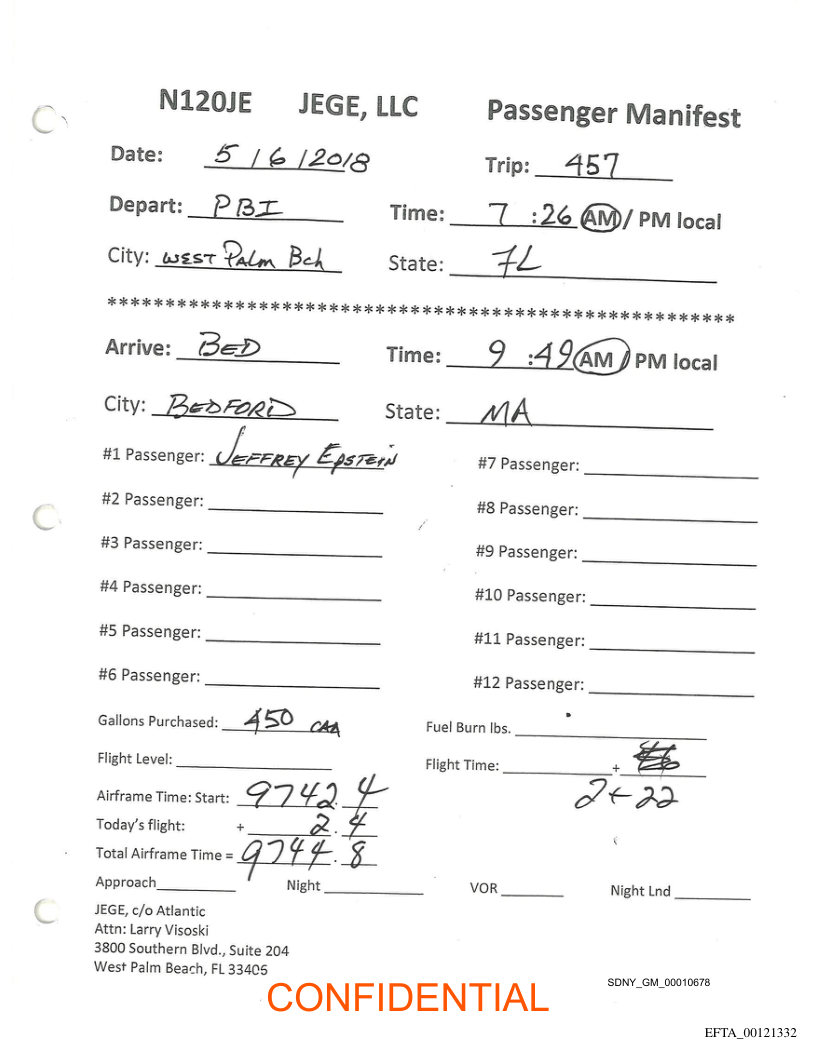 N120JE JEGE, LLC Passenger Manifest
Date: 5 / 6 / 2018 Trip: 457
Depart: PBI Time: 7 :26 AM / PM local
City: WEST PALM Bch State: FL
******************************************************
Arrive: BED Time: 9 :49 AM / PM local
City: BEDFORD State: MA
#1 Passenger: JEFFREY EPSTEIN #7 Passenger:
#2 Passenger: #8 Passenger:
#3 Passenger: #9 Passenger:
#4 Passenger: #10 Passenger:
#5 Passenger: #11 Passenger:
#6 Passenger: #12 Passenger:
Gallons Purchased: 450 CAA Fuel Burn lbs.
Flight Level: Flight Time: +
2+22
Airframe Time: Start: 9742.4
Today's flight: + 2.4
Total Airframe Time = 9744.8
Approach Night VOR Night Lnd
JEGE, c/o Atlantic
Attn: Larry Visoski
3800 Southern Blvd., Suite 204
West Palm Beach, FL 33405
SDNY_GM_00010678
CONFIDENTIAL
EFTA_00121332